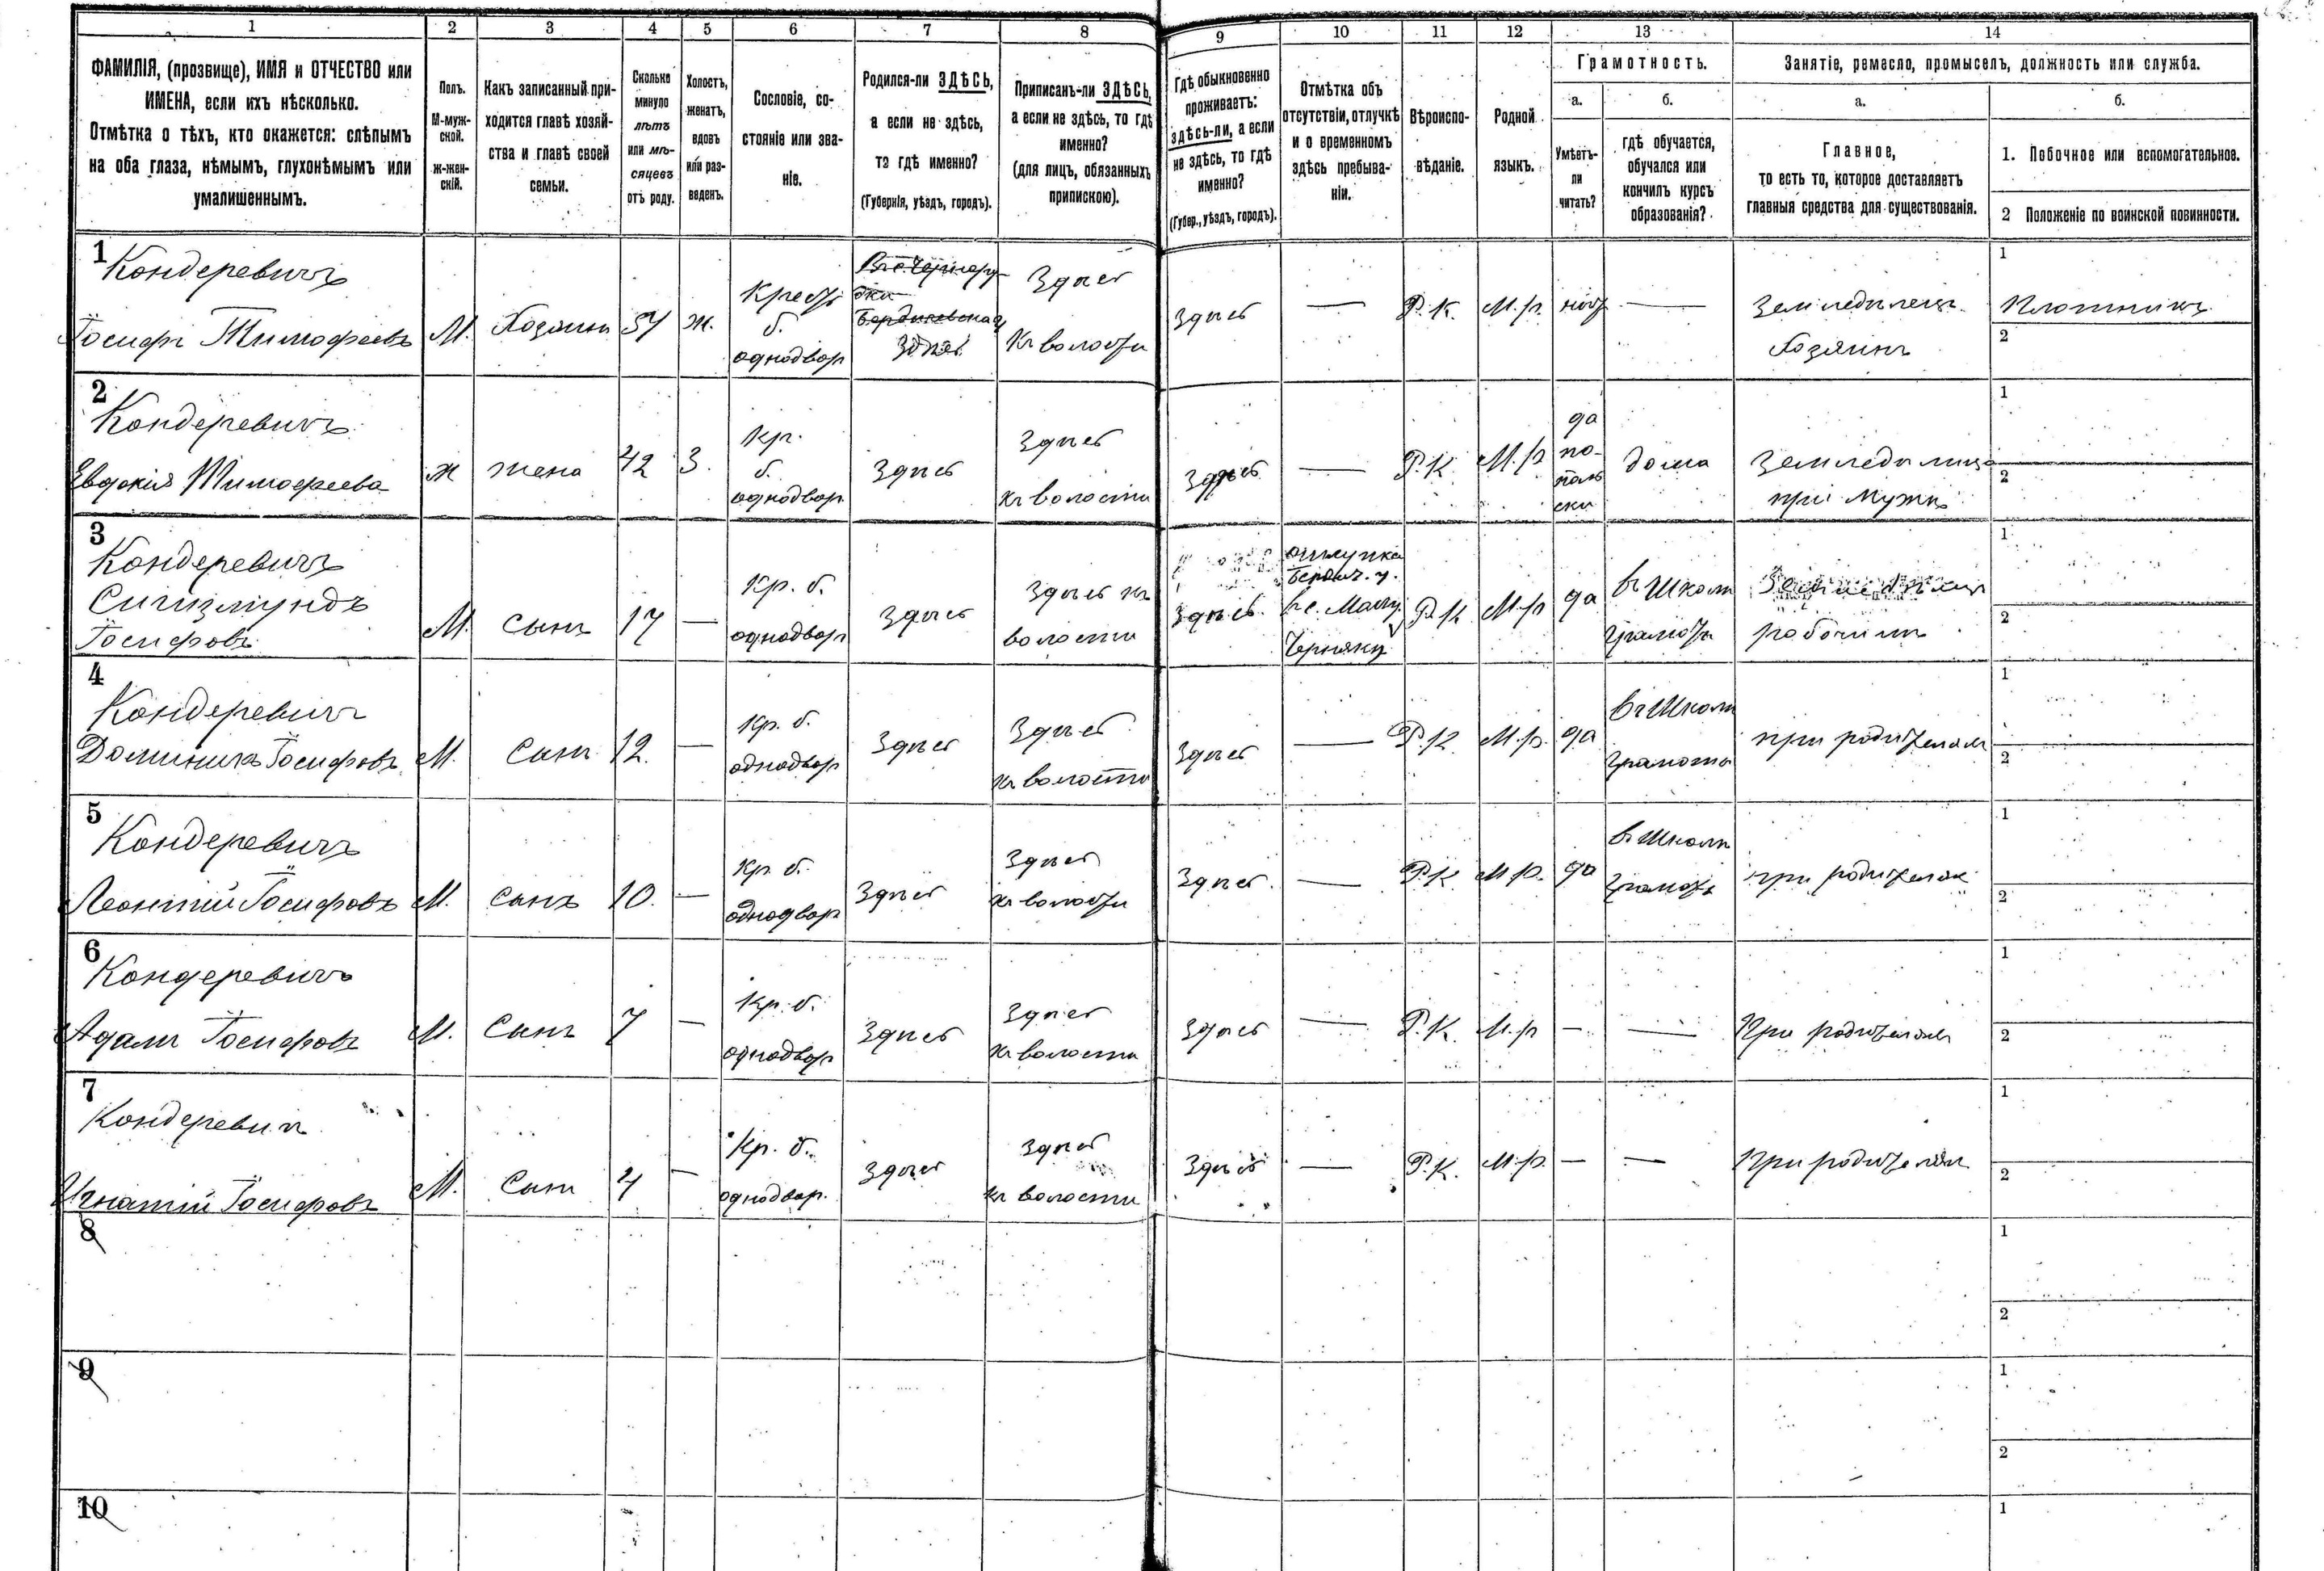 1 2 3 4 5 6 7 8 9 10 11 12 13 14
ФАМИЛІЯ, (прозвище), ИМЯ и ОТЧЕСТВО или
ИМЕНА, если ихъ нѣсколько.
Отмѣтка о тѣхъ, кто окажется: слѣпымъ
на оба глаза, нѣмымъ, глухонѣмымъ или
умалишеннымъ.
Полъ.
М-муж-
ской.
ж-жен-
скій.
Какъ записанный при-
ходится главѣ хозяй-
ства и главѣ своей
семьи.
Сколько
минуло
лѣтъ
или мѣ-
сяцевъ
отъ роду.
Холостъ,
женатъ,
вдовъ
или раз-
веденъ.
Сословіе, со-
стояніе или зва-
ніе.
Родился-ли ЗДѢСЬ,
а если не здѣсь,
то гдѣ именно?
(Губернія, уѣздъ, городъ).
Приписанъ-ли ЗДѢСЬ,
а если не здѣсь, то гдѣ
именно?
(для лицъ, обязанныхъ
припискою).
Гдѣ обыкновенно
проживаетъ:
здѣсь-ли, а если
не здѣсь, то гдѣ
именно?
(Губер., уѣздъ, городъ).
Отмѣтка объ
отсутствіи, отлучкѣ
и о временномъ
здѣсь пребыва-
ніи.
Вѣроиспо-
вѣданіе.
Родной
языкъ.
Грамотность.
а.
Умѣетъ-
ли
читать?
б.
гдѣ обучается,
обучался или
кончилъ курсъ
образованія?
Занятіе, ремесло, промыселъ, должность или служба.
а.
Главное,
то есть то, которое доставляетъ
главныя средства для существованія.
б.
1. Побочное или вспомогательное.
2 Положеніе по воинской повинности.
1
Кондеревичъ
Іосифъ Тимофеевъ
М.
Хозяинъ
57
ж.
Крест
б.
однодвор
Бердичевскаго
Здѣсь
Здѣсь
къ волости
Здѣсь
—
Р. К.
М. р.
нѣт
—
Земледѣлецъ
Хозяинъ
1
Плотникъ
2
2
Кондеревичъ
Евдокія Тимофеева
Ж
жена
42
З.
Кр.
б.
однодвор
Здѣсь
Здѣсь
къ волости
Здѣсь
—
Р. К.
М. р
да
по-
поль
ски
дома
Земледѣлица
при мужѣ
1
2
3
Кондеревичъ
Сигизмундъ
Іосифовъ
М.
Сынъ
17
—
Кр. б.
однодвор
Здѣсь
Здѣсь къ
волости
Здѣсь.
отлучка
Бердич. у.
в с. Малу
Черняву
Р. К
М. р
да
въ Школѣ
грамоты
рабочимъ
1
2
4
Кондеревичъ
Доминикъ Іосифовъ
М.
Сынъ
12.
—
Кр. б.
однодвор
Здѣсь
Здѣсь
къ волости
Здѣсь
—
Р. К
М. р.
да
въ Школѣ
грамоты
при родителяхъ
1
2
5
Кондеревичъ
Леонтій Іосифовъ
М.
Сынъ
10.
—
Кр. б.
однодвор
Здѣсь
Здѣсь
къ волости
Здѣсь.
—
Р. К.
М. р.
да
въ Школѣ
грамоты
при родителяхъ
1
2
6
Кондеревичъ
Адамъ Іосифовъ
М.
Сынъ
7
—
Кр. б.
однодвор
Здѣсь
Здѣсь
къ волости
Здѣсь
—
Р. К.
М. р
—
—
При родителяхъ
1
2
7
Кондеревич
Игнатій Іосифовъ
М.
Сынъ
4
—
Кр. б.
однодвор.
Здѣсь
Здѣсь
къ волости
Здѣсь
—
Р. К.
М. р.
—
—
При родителях
1
2
8
1
2
9
1
2
10
1